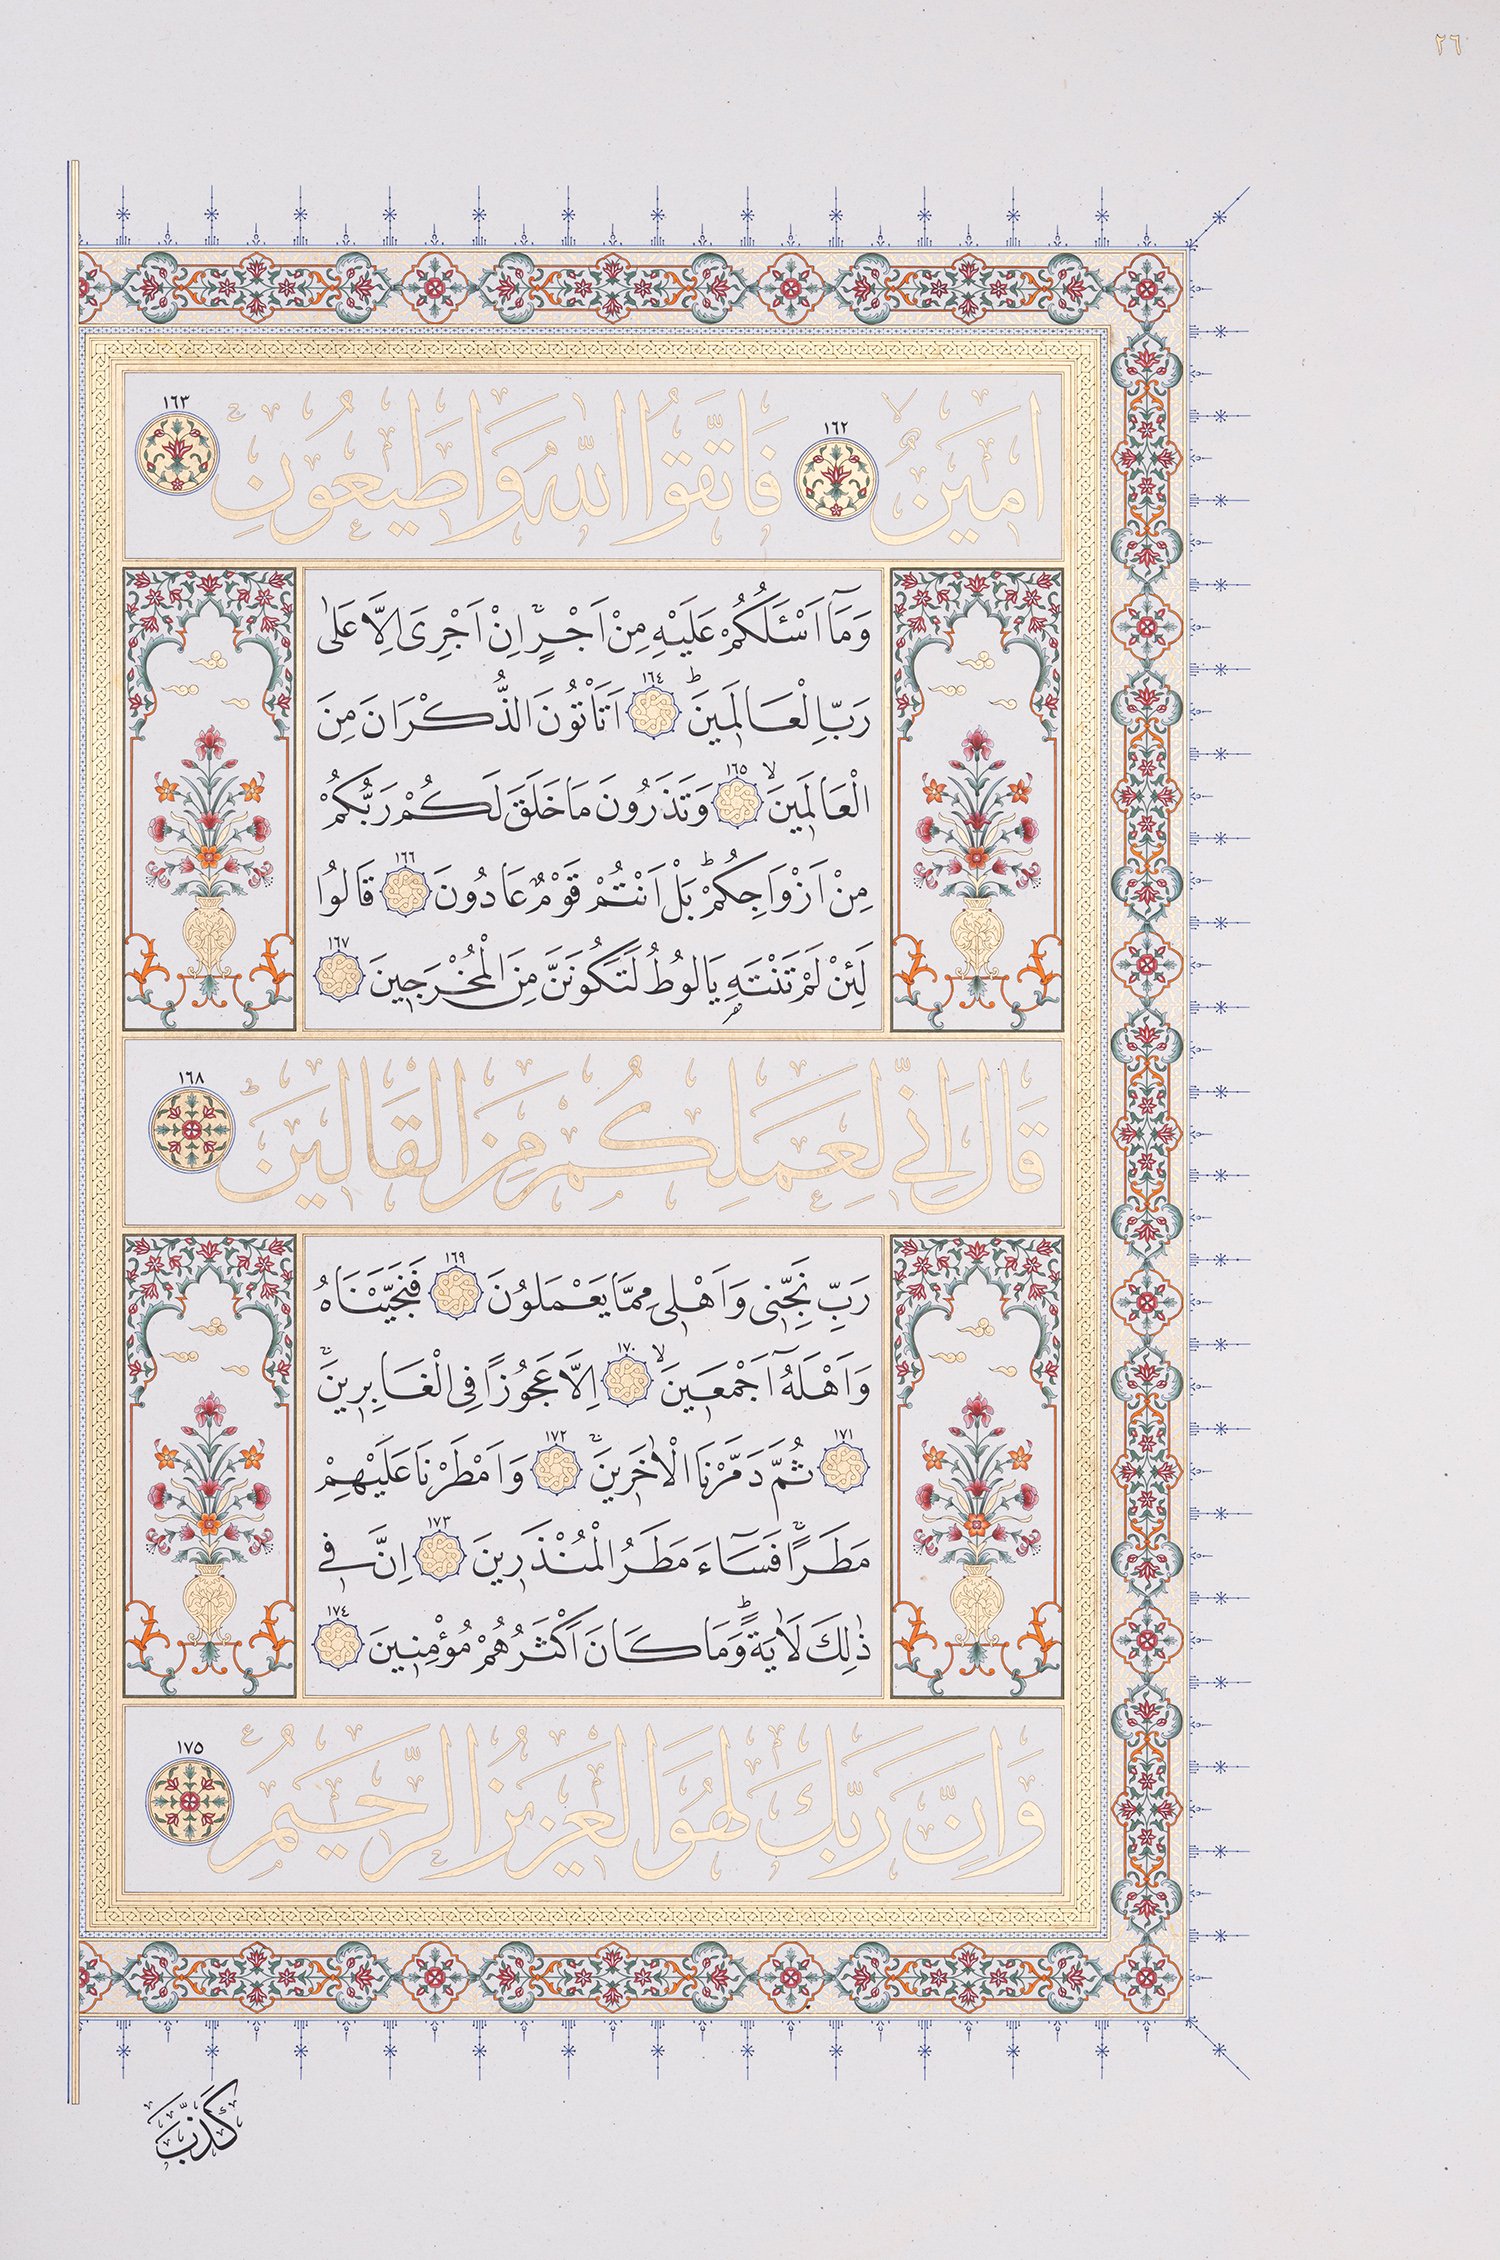 ٢٦
اَمٖينٌۙ ١٦٢ فَاتَّقُوا اللّٰهَ وَاَطٖيعُونِۚ ١٦٣
وَمَٓا اَسْـَٔلُكُمْ عَلَيْهِ مِنْ اَجْرٍۚ اِنْ اَجْرِىَ اِلَّا عَلٰى
رَبِّ الْعَالَمٖينَؕ ١٦٤ اَتَاْتُونَ الذُّكْرَانَ مِنَ
الْعَالَمٖينَۙ ١٦٥ وَتَذَرُونَ مَا خَلَقَ لَكُمْ رَبُّكُمْ
مِنْ اَزْوَاجِكُمْؕ بَلْ اَنْتُمْ قَوْمٌ عَادُونَ ١٦٦ قَالُوا
لَئِنْ لَمْ تَنْتَهِ يَا لُوطُ لَتَكُونَنَّ مِنَ الْمُخْرَجٖينَ ١٦٧
قَالَ اِنّٖى لِعَمَلِكُمْ مِنَ الْقَالٖينَؕ ١٦٨
رَبِّ نَجِّنٖى وَاَهْلٖى مِمَّا يَعْمَلُونَ ١٦٩ فَنَجَّيْنَاهُ
وَاَهْلَهُٓ اَجْمَعٖينَۙ ١٧٠ اِلَّا عَجُوزًا فِى الْغَابِرٖينَۚ
١٧١ ثُمَّ دَمَّرْنَا الْاٰخَرٖينَۚ ١٧٢ وَاَمْطَرْنَا عَلَيْهِمْ
مَطَرًاۚ فَسَٓاءَ مَطَرُ الْمُنْذَرٖينَ ١٧٣ اِنَّ فٖى
ذٰلِكَ لَاٰيَةًؕ وَمَا كَانَ اَكْثَرُهُمْ مُؤْمِنٖينَ ١٧٤
وَاِنَّ رَبَّكَ لَهُوَ الْعَزٖيزُ الرَّحٖيمُ ١٧٥
كَذَّبَ